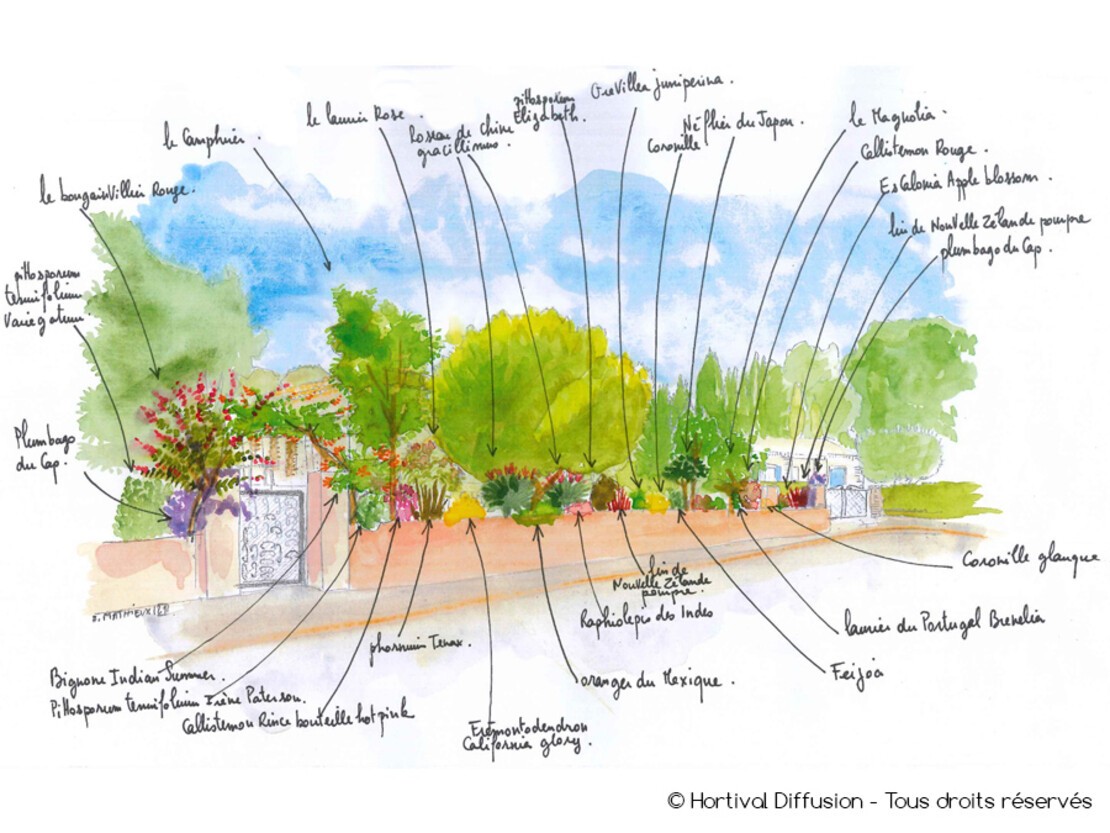 le Camphrier.
le laurier Rose.
Roseau de Chine
gracillimus.
pittosporum
Elizabeth.
Grevillea juniperina.
Coronille
Néflier du Japon.
le Magnolia.
Callistemon Rouge.
Escalonia Apple blossom.
lin de Nouvelle Zélande pourpre
plumbago du Cap.
le bougainvillier Rouge.
pittosporum
tenuifolium
Variegatum.
Plumbago
du Cap.
Coronille glauque
laurier du Portugal Brenelia
Feijoa
lin de
Nouvelle Zélande
pourpre.
Raphiolepis des Indes
oranger du Mexique.
phormium Tenax.
Fremontodendron
California glory.
Bignone Indian Summer.
Pittosporum tenuifolium Irène Paterson.
Callistemon Rince bouteille hot pink
MATHIEUX
© Hortival Diffusion - Tous droits réservés